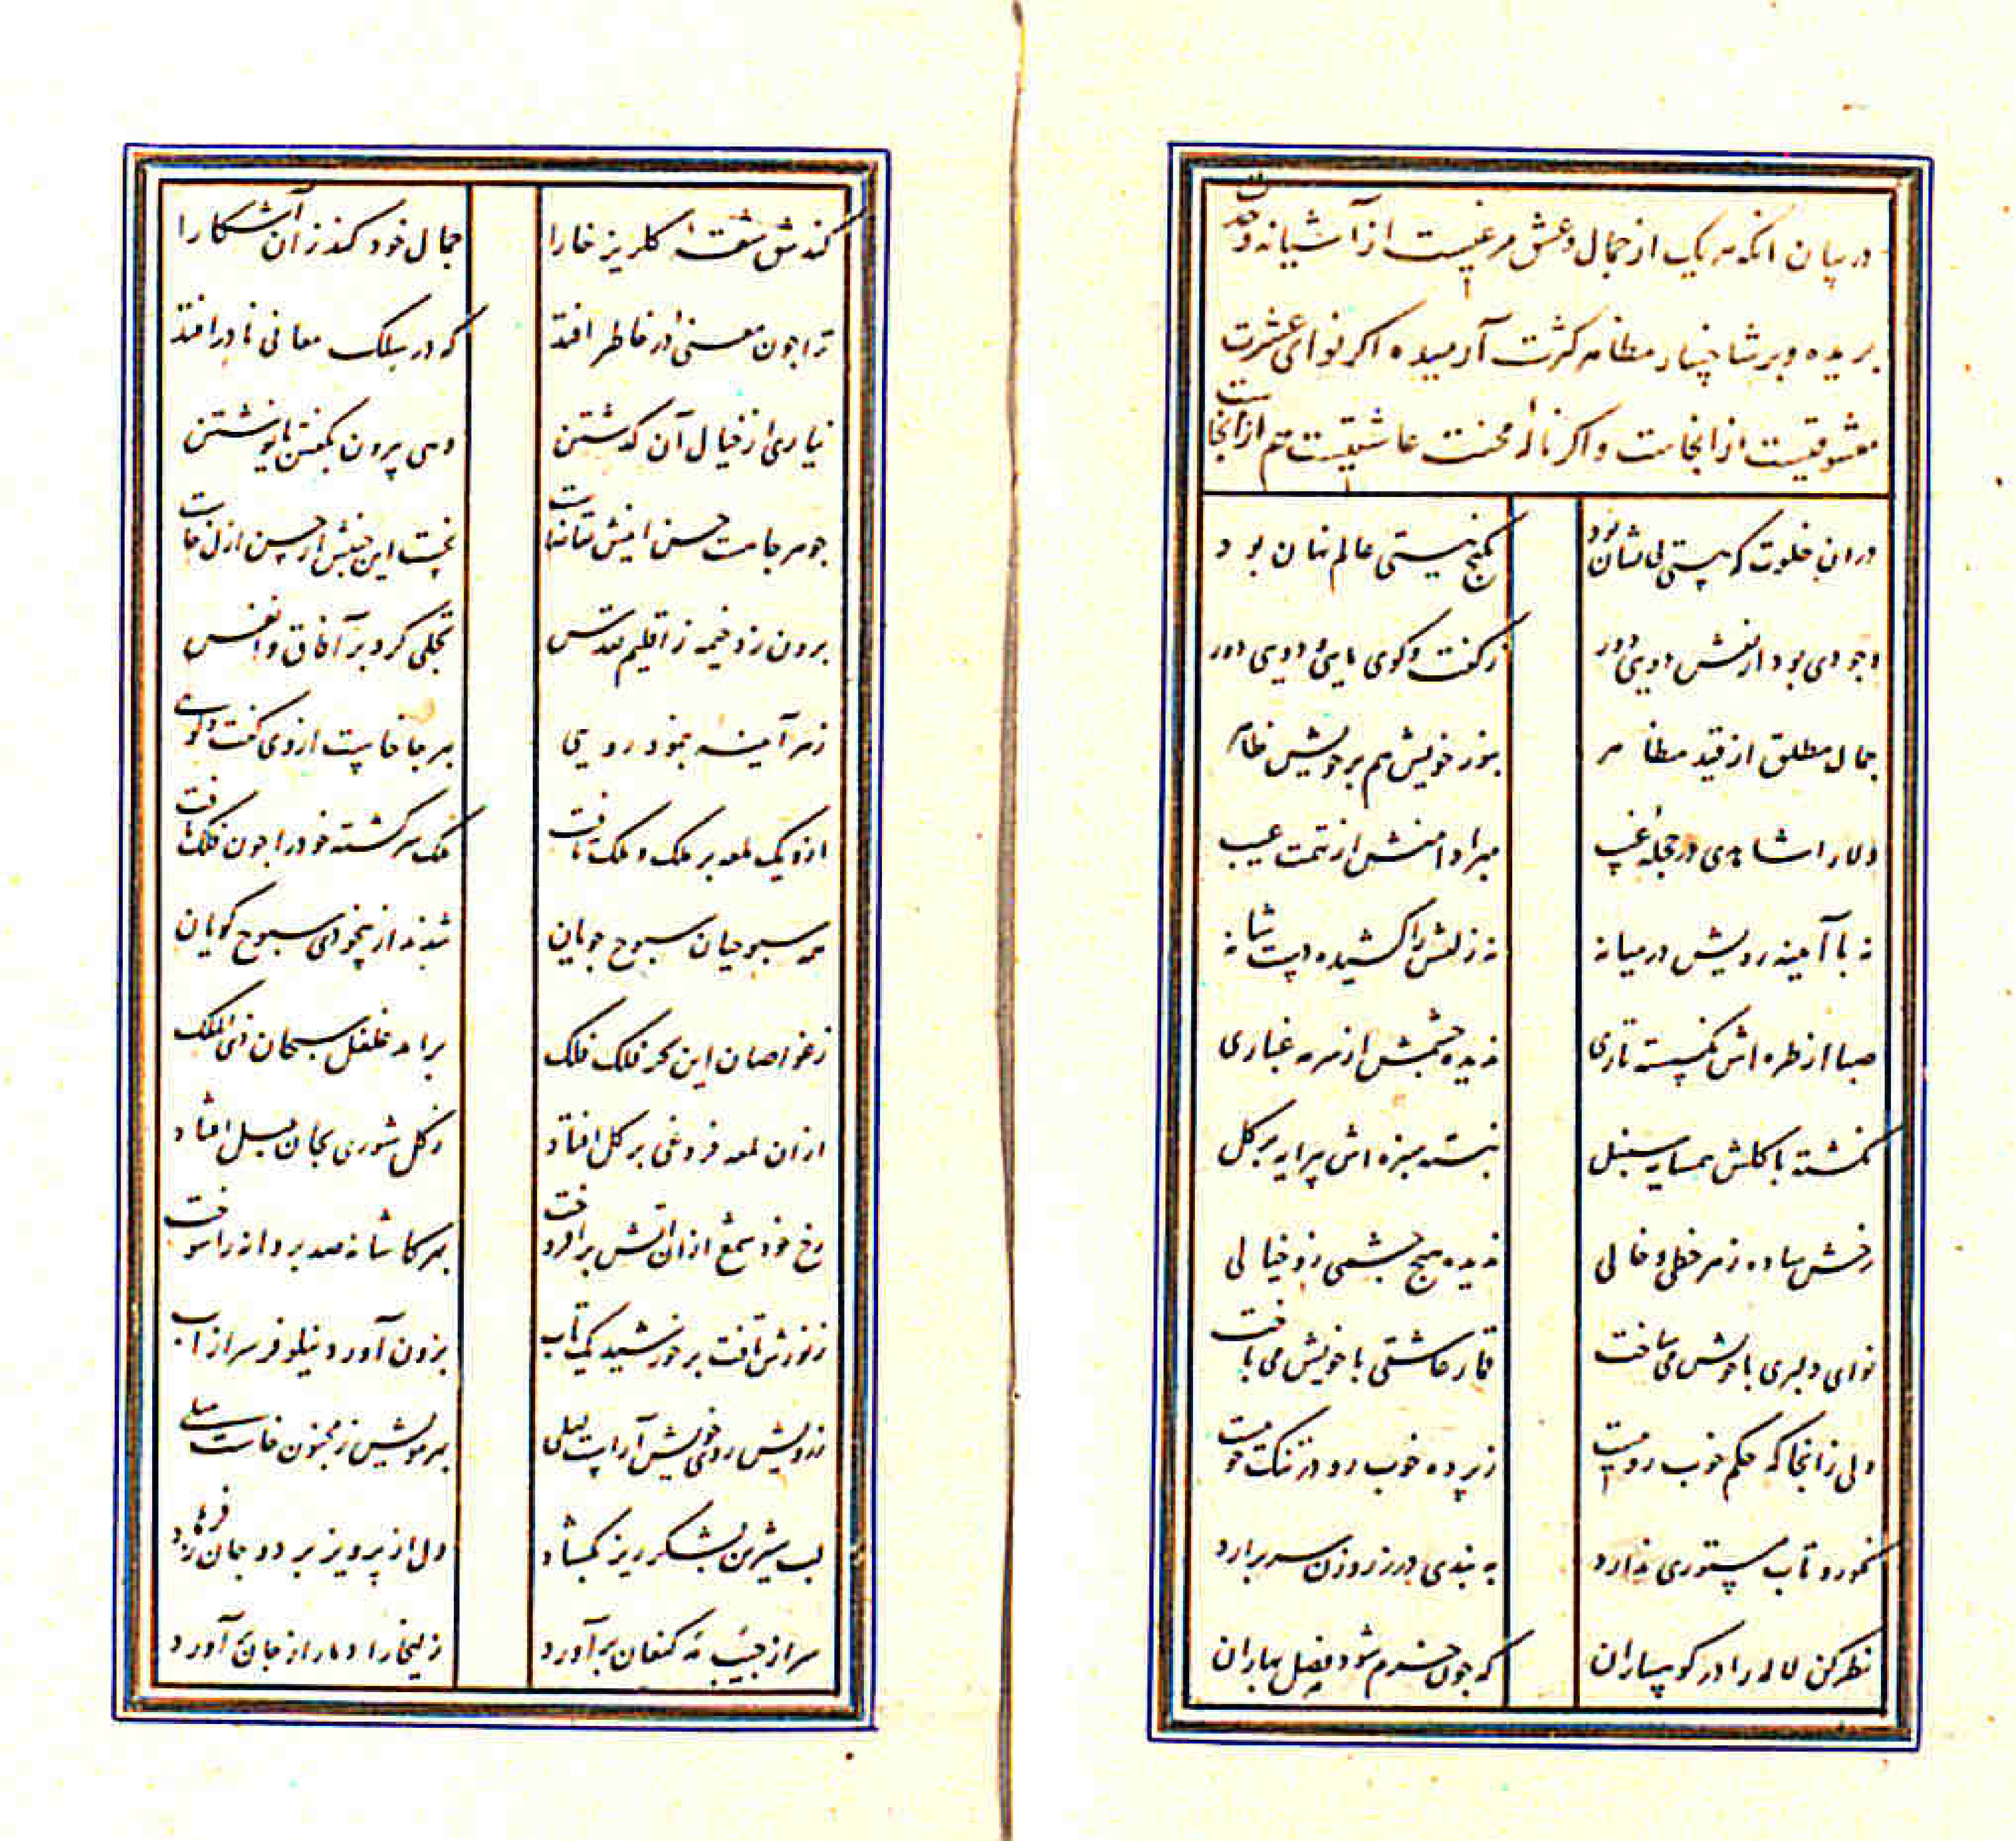 در بیان آنکه هر یک از جمال و عشق مرغیست از آشیانه وحدت
بریده و بر شاخسار مظاهر کثرت آرمیده اکر نوای عشرت
معشوقیست از انجاست و اکر ناله محنت عاشقیست هم از انجاست
دران خلوت که هستی بی نشان بود بکنج نیستی عالم نهان بود
وجودی بود از نقش دویی دور ز کفت و کوی مایی و دویی دور
جمال مطلق از قید مظاهر بنور خویش هم بر خویش ظاهر
دلارا شاهدی در حجله غیب مبرا دامنش از تهمت عیب
نه با آیینه رویش درمیانه نه زلفش را کشیده دست شانه
صبا از طره اش نکسسته تاری ندیده چشمش از سرمه غباری
نکشته با کلش همسایه سنبل نبسته سبزه اش پیرایه بر کل
رخش ساده ز هر خطی و خالی ندیده هیچ چشمی زو خیالی
نوای دلبری با خویش می ساخت قمار عاشقی با خویش می باخت
ولی زانجا که حکم خوب روییست ز پرده خوب رو در تنک خوییست
نکو رو تاب مستوری ندارد به بندی در ز روزن سر برارد
نظر کن لاله را در کوهساران که چون خرم شود فصل بهاران
کند شق شقه کلریز خارا جمال خود کند زان آشکارا
ترا چون معنی در خاطر افتد که در سلک معانی نادر افتد
نیاری از خیال آن کذشتن دهی بیرون بکفتن یا نوشتن
چو هر جا هست حسن اینش تقاضاست نخست این جنبش از حسن ازل خاست
برون زد خیمه ز اقلیم تقدس تجلی کرد بر آفاق و انفس
ز هر آیینه بنمود رویی بهر جا خاست از وی کفت و کوی
ازو یک لمعه بر ملک و ملک تافت ملک سرکشته خود را چون فلک یافت
همه سبوحیان سبوح جویان شدند از بیخودی سبوح کویان
ز غواصان این بحر فلک فلک برامد غلغل سبحان ذی الملک
ازان لمعه فروغی بر کل افتاد ز کل شوری بجان بلبل افتاد
رخ خود شمع ازان آتش برافروخت بهر کاشانه صد پروانه را سوخت
ز نورش تافت بر خورشید یک تاب برون آورد نیلوفر سر از آب
ز رویش روی خویش آراست لیلی بهر مویش ز مجنون خاست میلی
لب شیرین بشکر ریز بکشاد دل از پرویز برد و جان ز فرهاد
سر از جیب مه کنعان برآورد زلیخا را دمار از جان برآورد